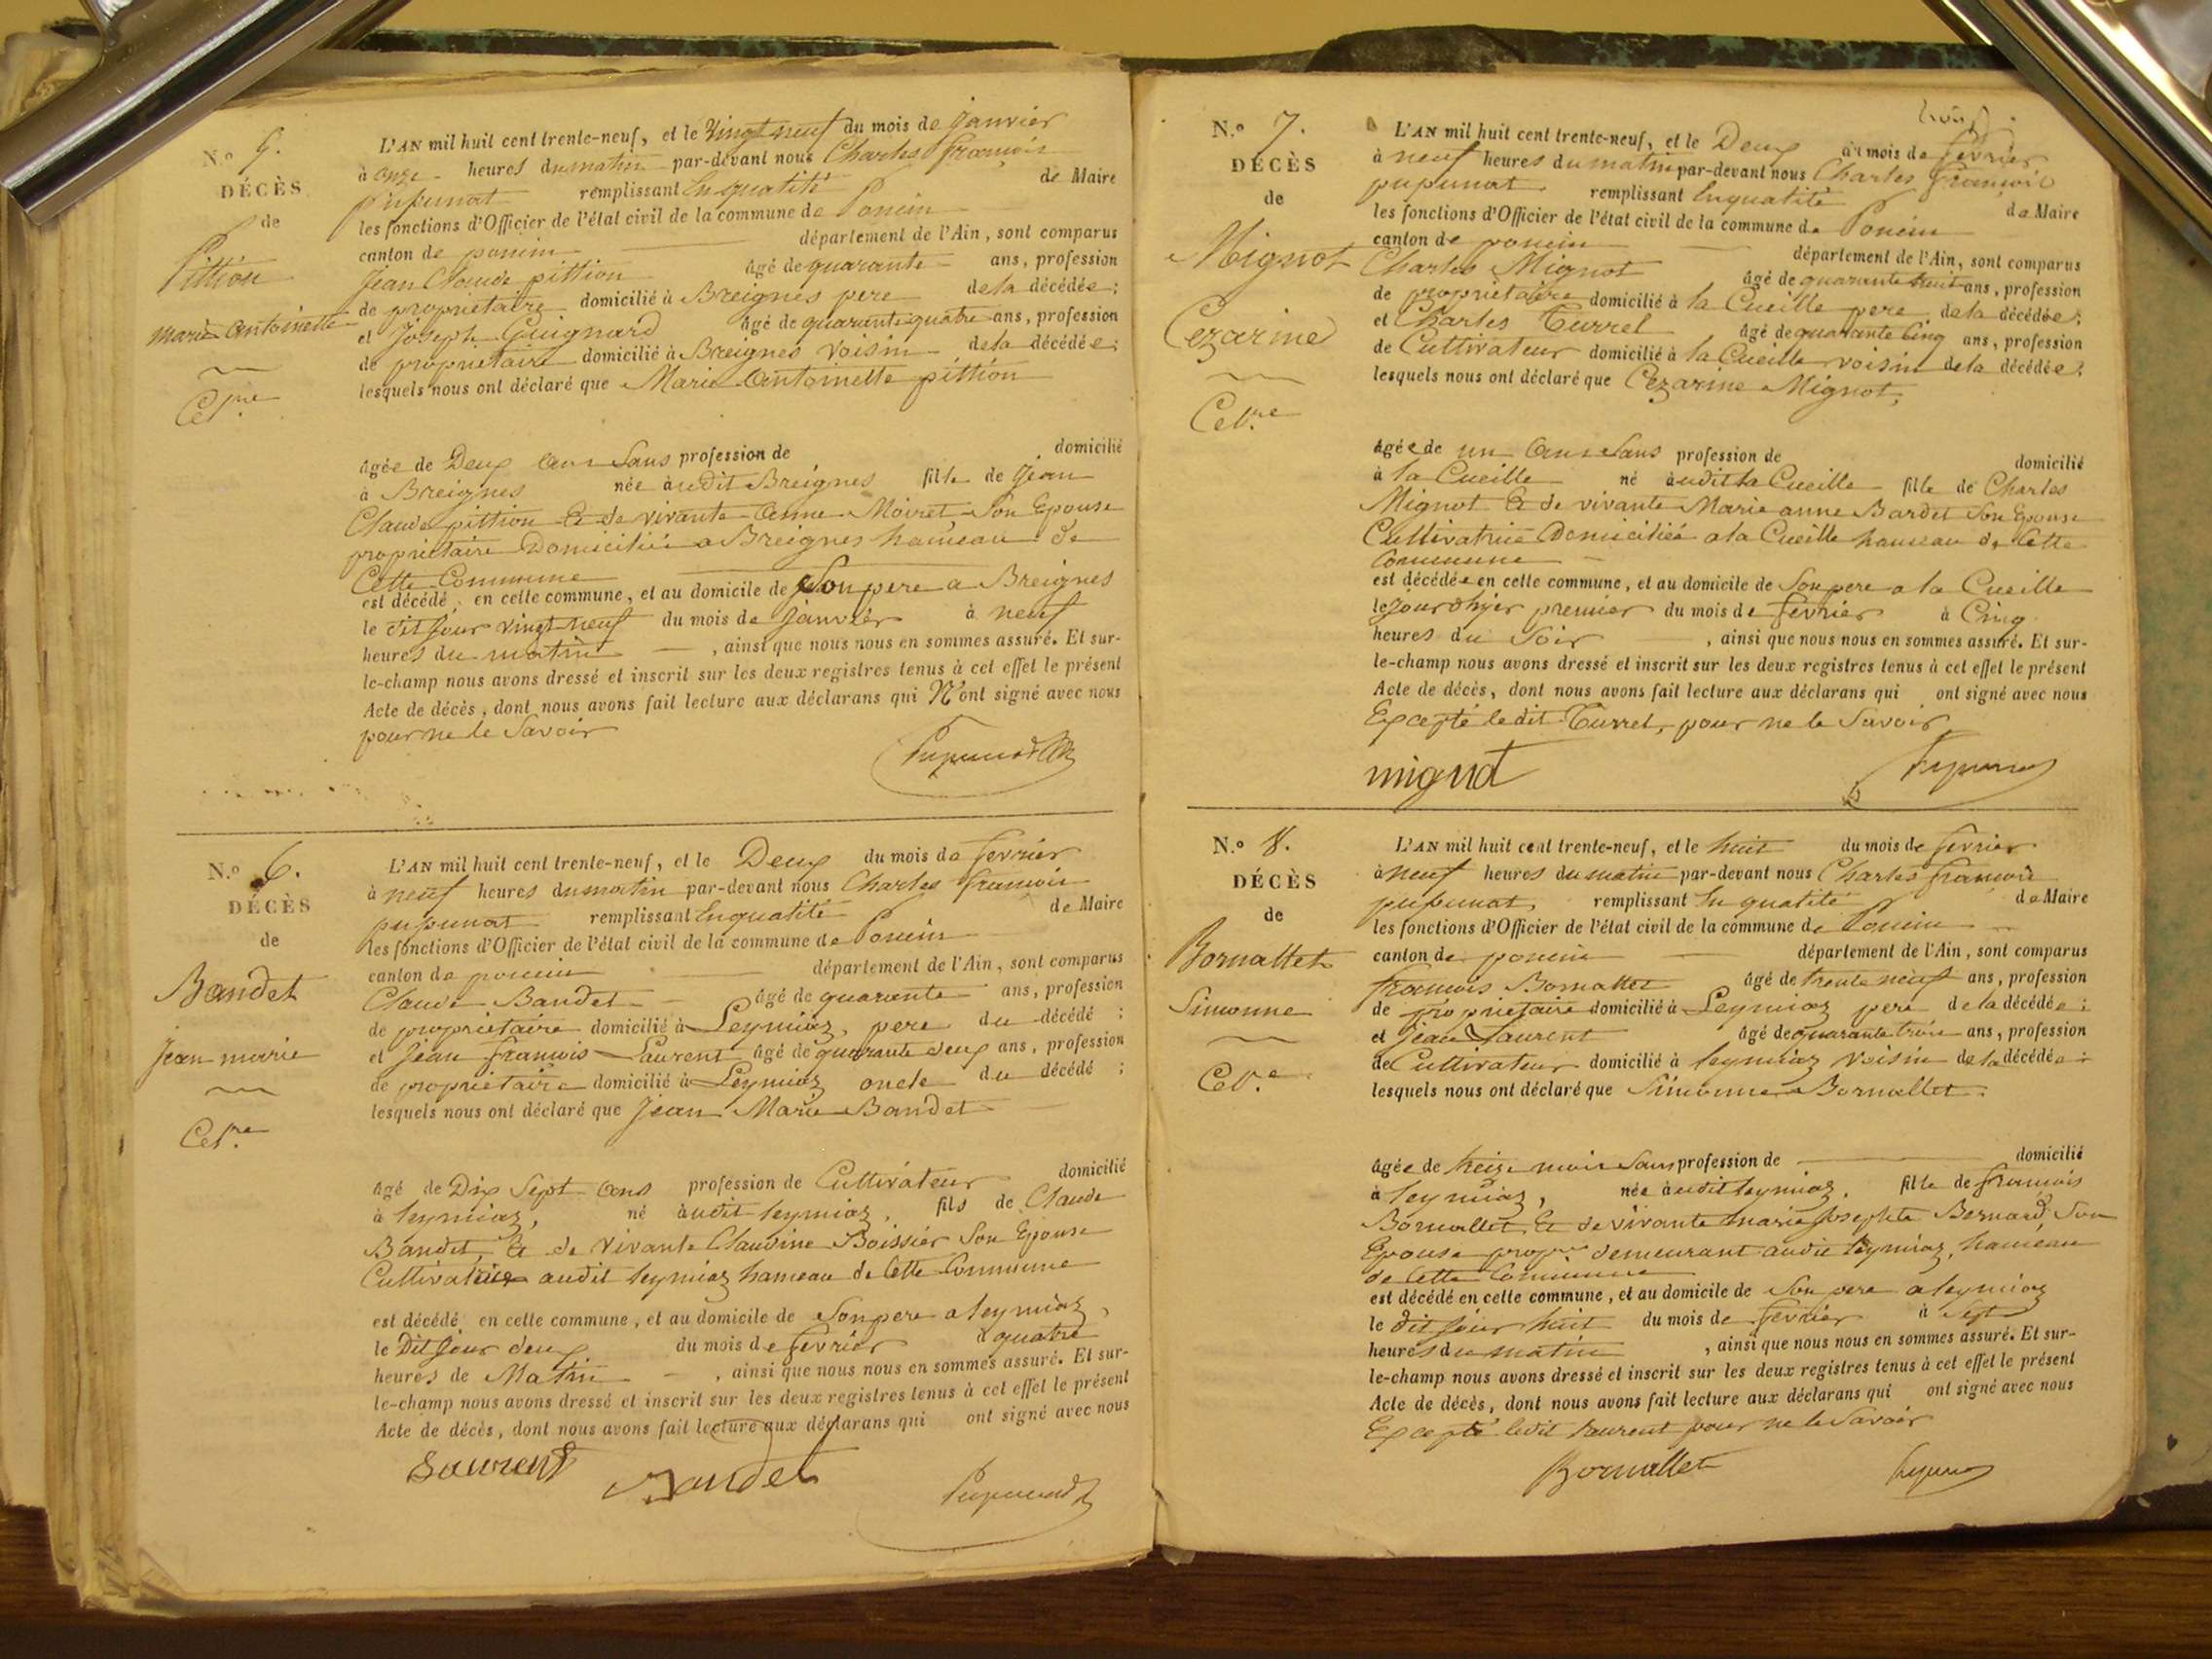 N.o 5.
DÉCÈS
de
Pittion
Marie Antoinette
Cel.re
L'AN mil huit cent trente-neuf, et le Vingt neuf du mois de Janvier
à onze heures du matin par-devant nous Charles françois
pupunat remplissant En qualité de Maire
les fonctions d'Officier de l'état civil de la commune de Poncin
canton de poncin département de l'Ain, sont comparus
Jean Claude pittion âgé de quarante ans, profession
de propriétaire domicilié à Breignes pere de la décédée;
et Joseph Guignard âgé de quarante quatre ans, profession
de propriétaire domicilié à Breignes voisin de la décédée;
lesquels nous ont déclaré que Marie Antoinette pittion
âgée de Deux ans Sans profession de domicilié
à Breignes née audit Breignes fille de Jean
Claude pittion Et de vivante Anne Moiret Son Epouse
propriétaire Domiciliée a Breignes hameau de
Cette Commune
est décédé en cette commune, et au domicile de Son pere a Breignes
le dit jour vingt neuf du mois de Janvier à neuf
heures du matin, ainsi que nous nous en sommes assuré. Et sur-
le-champ nous avons dressé et inscrit sur les deux registres tenus à cet effet le présent
Acte de décès, dont nous avons fait lecture aux déclarans qui N'ont signé avec nous
pour ne le Savoir
Pupunat
N.o 6.
DÉCÈS
de
Bandet
Jean marie
Cel.re
L'AN mil huit cent trente-neuf, et le Deux du mois de fevrier
à neuf heures du matin par-devant nous Charles françois
pupunat remplissant En qualité de Maire
les fonctions d'Officier de l'état civil de la commune de Poncin
canton de poncin département de l'Ain, sont comparus
Claude Bandet âgé de quarante ans, profession
de propriétaire domicilié à Leymiaz, pere du décédé;
et Jean françois Laurent âgé de quarante deux ans, profession
de propriétaire domicilié à Leymiaz oncle du décédé;
lesquels nous ont déclaré que Jean Marie Bandet
âgé de Dix Sept ans profession de Cultivateur domicilié
à leymiaz, né audit leymiaz, fils de Claude
Bandet, Et de vivante Claudine Boissier Son Epouse
Cultivatrice audit leymiaz hameau de Cette Commune
est décédé en cette commune, et au domicile de Son pere a leymiaz,
le Dit jour deux du mois de fevrier à quatre
heures de Matin, ainsi que nous nous en sommes assuré. Et sur-
le-champ nous avons dressé et inscrit sur les deux registres tenus à cet effet le présent
Acte de décès, dont nous avons fait lecture aux déclarans qui ont signé avec nous
Laurent Bandet Pupunat
N.o 7.
DÉCÈS
de
Mignot
Cezarine
Cel.re
L'AN mil huit cent trente-neuf, et le Deux du mois de fevrier
à neuf heures du matin par-devant nous Charles françois
pupunat remplissant En qualité de Maire
les fonctions d'Officier de l'état civil de la commune de Poncin
canton de poncin département de l'Ain, sont comparus
Charles Mignot âgé de quarante huit ans, profession
de propriétaire domicilié à la Cueille pere de la décédée;
et Charles Turrel âgé de quarante Cinq ans, profession
de Cultivateur domicilié à la Cueille voisin de la décédée;
lesquels nous ont déclaré que Cezarine Mignot,
âgée de un an Sans profession de domicilié
à la Cueille né audit la Cueille fille de Charles
Mignot Et de vivante Marie anne Bardet Son Epouse
Cultivatrice Domiciliée a la Cueille hameau de Cette
Commune
est décédée en cette commune, et au domicile de Son pere a la Cueille
le jour d'hyer premier du mois de fevrier à Cinq
heures du Soir, ainsi que nous nous en sommes assuré. Et sur-
le-champ nous avons dressé et inscrit sur les deux registres tenus à cet effet le présent
Acte de décès, dont nous avons fait lecture aux déclarans qui ont signé avec nous
Excepté ledit Turrel, pour ne le Savoir
mignot Pupunat
N.o 8.
DÉCÈS
de
Bornallet
Simonne
Cel.re
L'AN mil huit cent trente-neuf, et le huit du mois de fevrier
à neuf heures du matin par-devant nous Charles françois
pupunat, remplissant En qualité de Maire
les fonctions d'Officier de l'état civil de la commune de Poncin
canton de poncin département de l'Ain, sont comparus
françois Bornallet âgé de trente neuf ans, profession
de propriétaire domicilié à Leymiaz pere de la décédée;
et Jean Laurent âgé de quarante trois ans, profession
de Cultivateur domicilié à leymiaz voisin de la décédée;
lesquels nous ont déclaré que Simonne Bornallet.
âgée de treize mois Sans profession de domicilié
à leymiaz, née audit leymiaz, fille de françois
Bornallet, Et de vivante marie Josephte Bernard, Son
Epouse demeurant audit leymiaz, hameau
de Cette Commune
est décédé en cette commune, et au domicile de Son pere a leymiaz
le dit jour huit du mois de fevrier à Sept
heures du matin, ainsi que nous nous en sommes assuré. Et sur-
le-champ nous avons dressé et inscrit sur les deux registres tenus à cet effet le présent
Acte de décès, dont nous avons fait lecture aux déclarans qui ont signé avec nous
Excepté ledit Laurent pour ne le Savoir
Bornallet